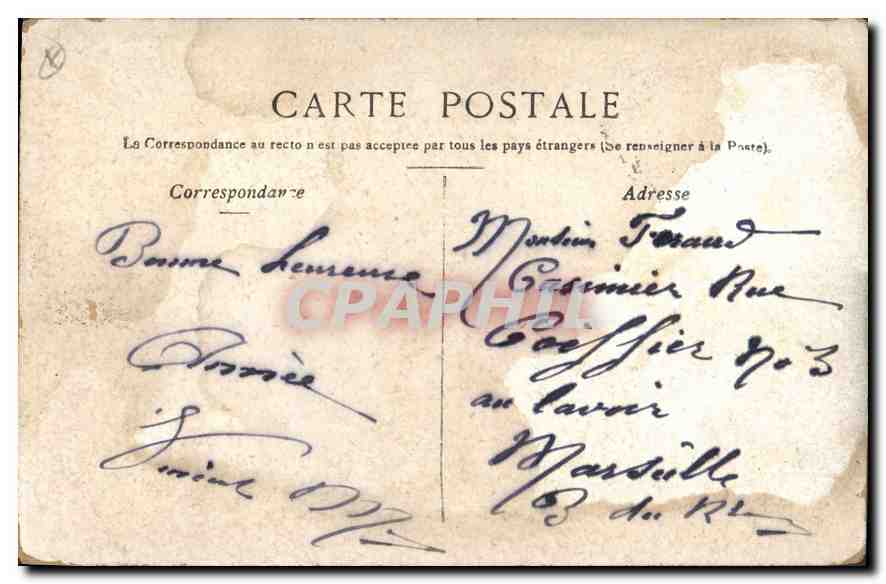 CARTE POSTALE
La Correspondance au recto n'est pas acceptée par tous les pays étrangers (Se renseigner à la Poste).
Correspondance
Bonne heureuse
Année
Adresse
Monsieur Feraud
Casimier Rue
Coeffier No 3
au lavoir
Marseille
B du Rh
CPAPHIL